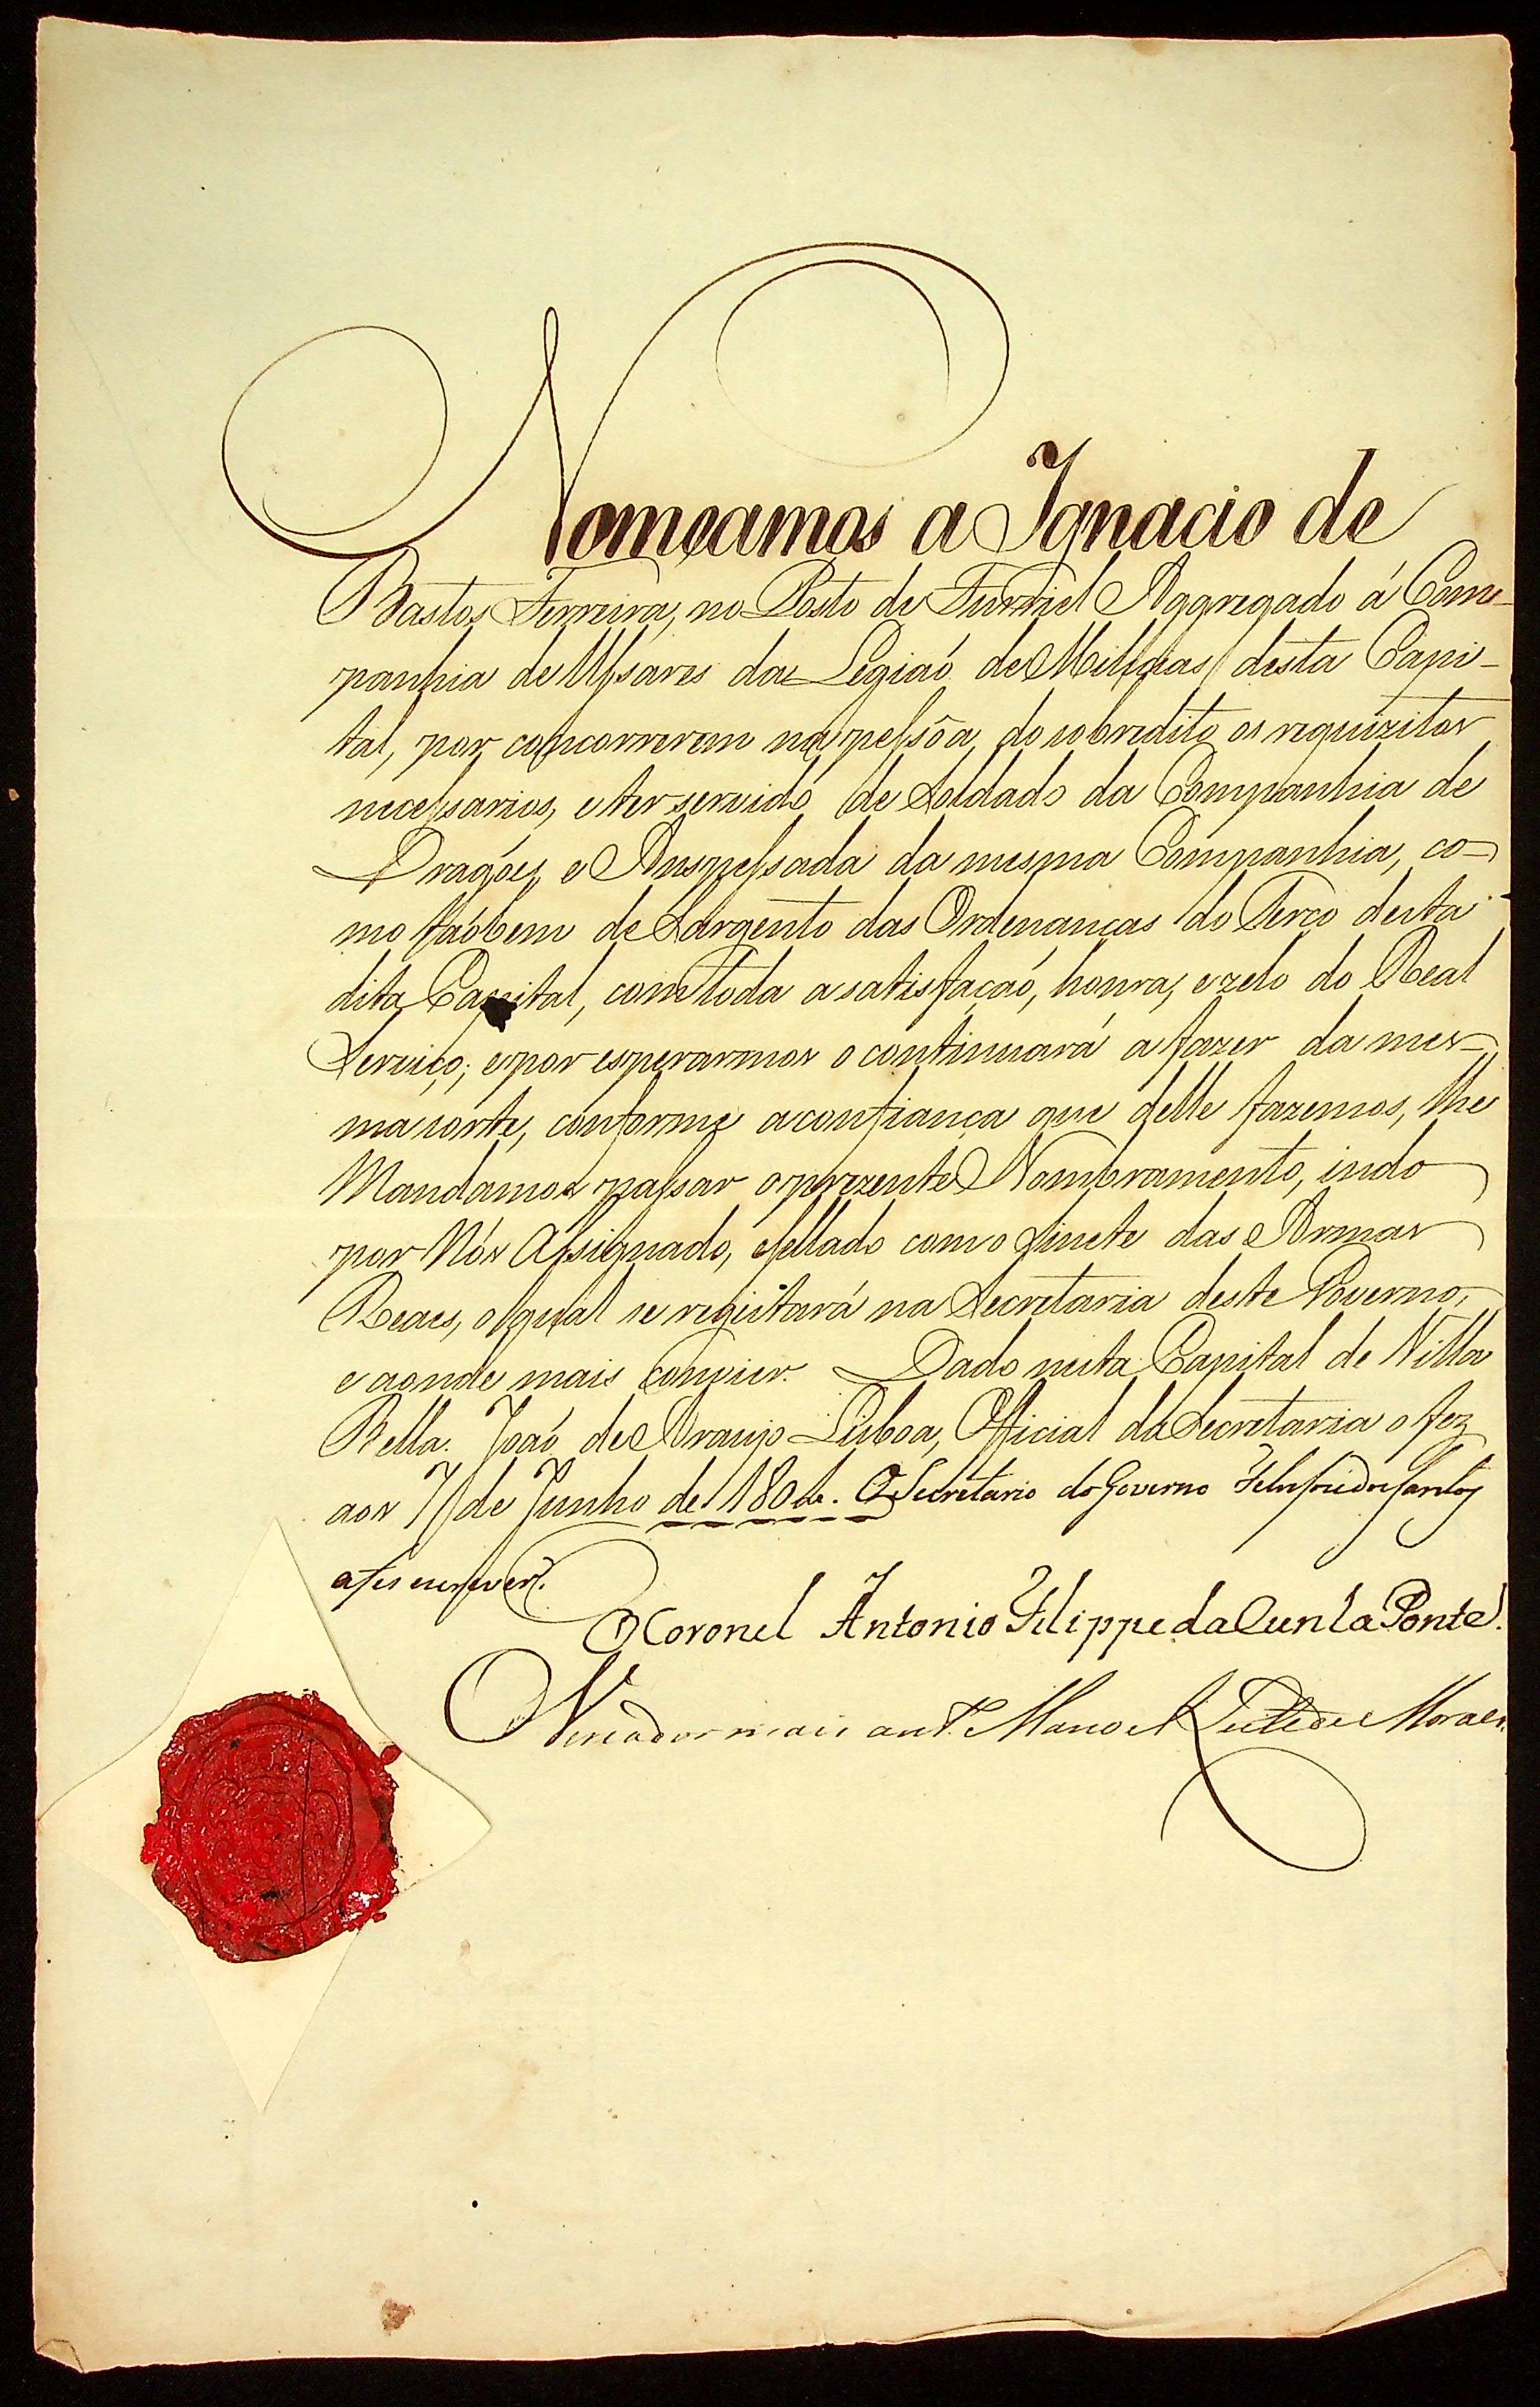 Nomeamos a Ignacio de
Bastos Ferreira, no Posto de Furriel Aggregado á Com-
panhia de Ussares da Legiaõ de Milicias desta Capi-
tal, por concorrerem na pessôa do sobredito os requizitos
necessarios, e ter servido de Soldado da Companhia de
Dragões, e Anspessada da mesma Companhia, co-
mo taõbem de Sargento das Ordenanças do Terço desta
dita Capital, com toda a satisfaçaõ, honra, e zelo do Real
Serviço; e por esperarmos o continuará a fazer da mes-
ma sorte, conforme a confiança que delle fazemos, lhe
Mandamos passar o prezente Nombramento, indo
por Nós Assignado, e sellado com o Sinete das Armas
Reaes, o qual se registará na Secretaria deste Governo,
e aonde mais convier. Dado nesta Capital de Villa
Bella. Joaõ de Araujo Lisboa, Official da Secretaria o fez
aos de Junho de 180 . O Secretario do Governo
a fes escrever.
O Coronel Antonio Filippe da Cunha Ponte.
O Vereador mais ant.º Manoel Leite de Moraes.